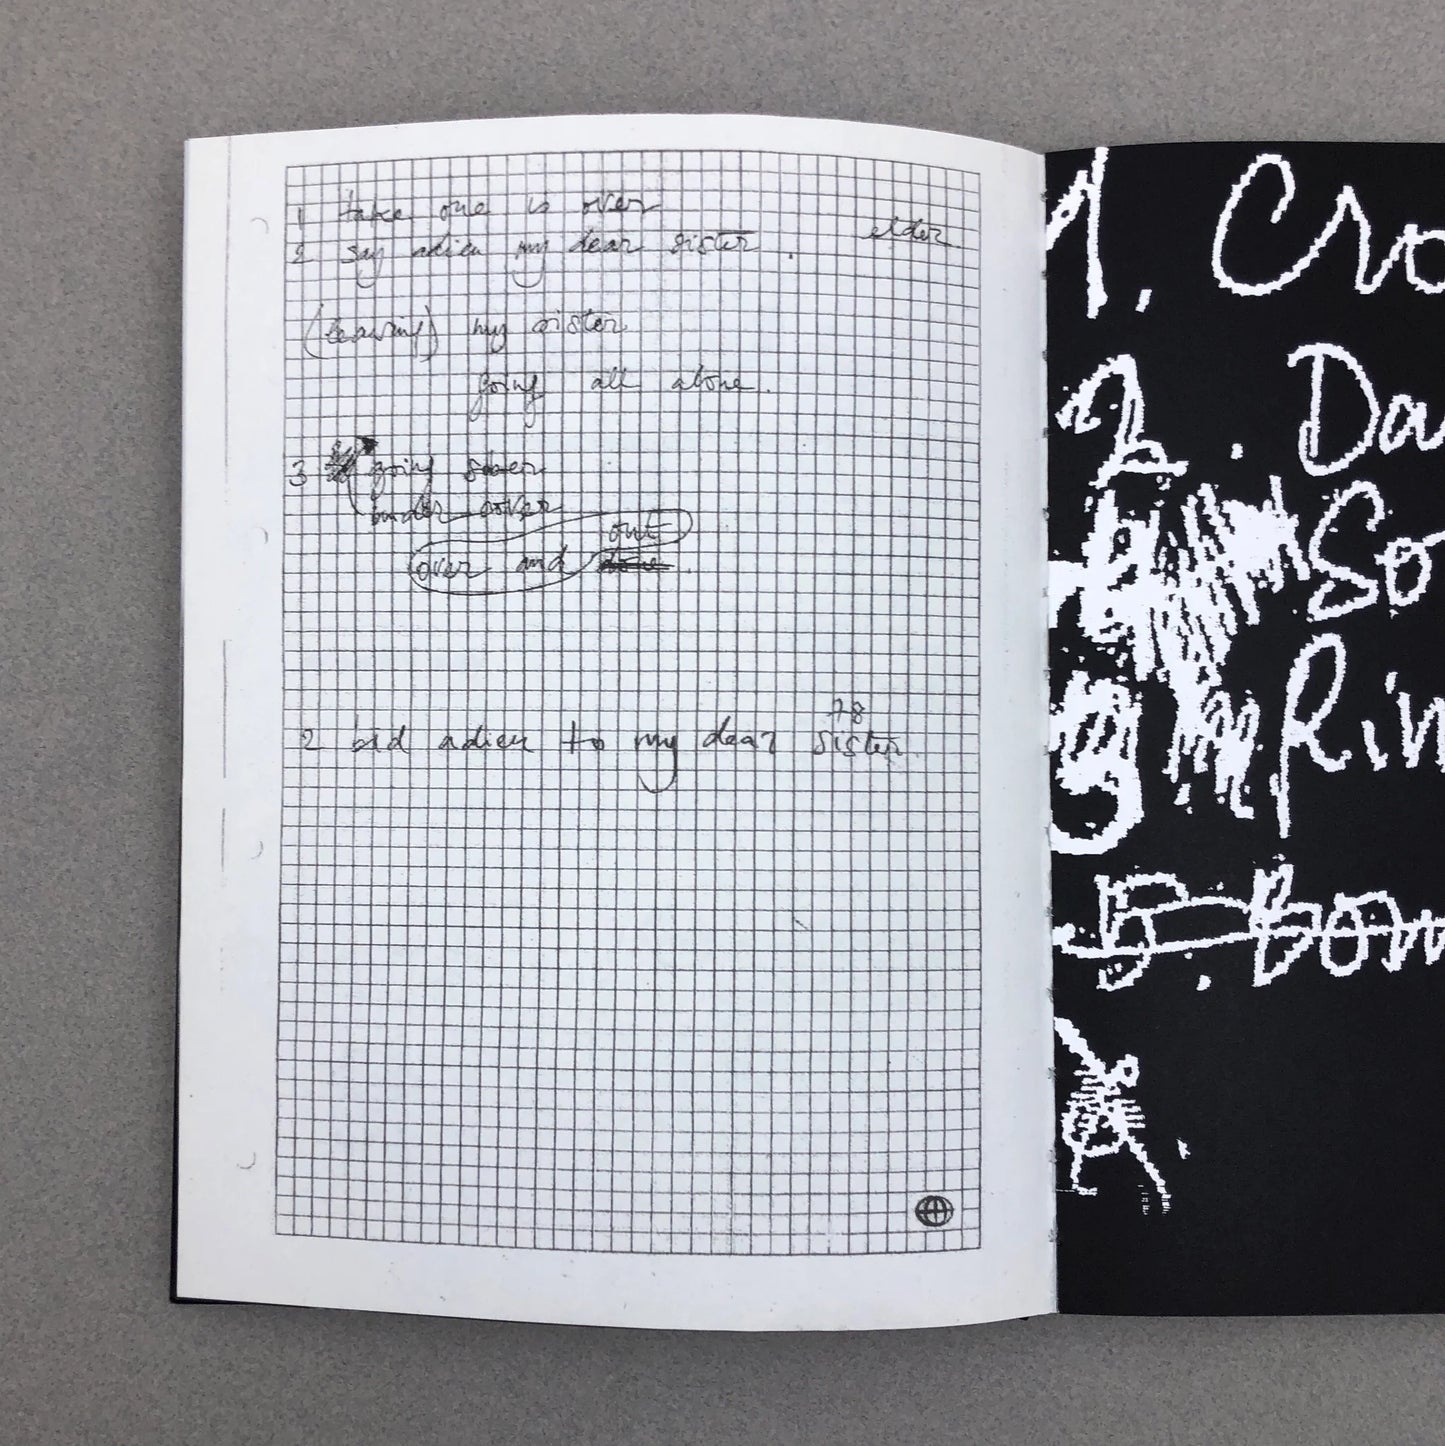 1 take one is over
elder
2 say adieu my dear sister.
(leaving) my sister
going all alone.
3 going sober
under cover
out
over and done.
78
2 bid adieu to my dear sister
1, Cro
2. Da
So
Rin
5. Bom